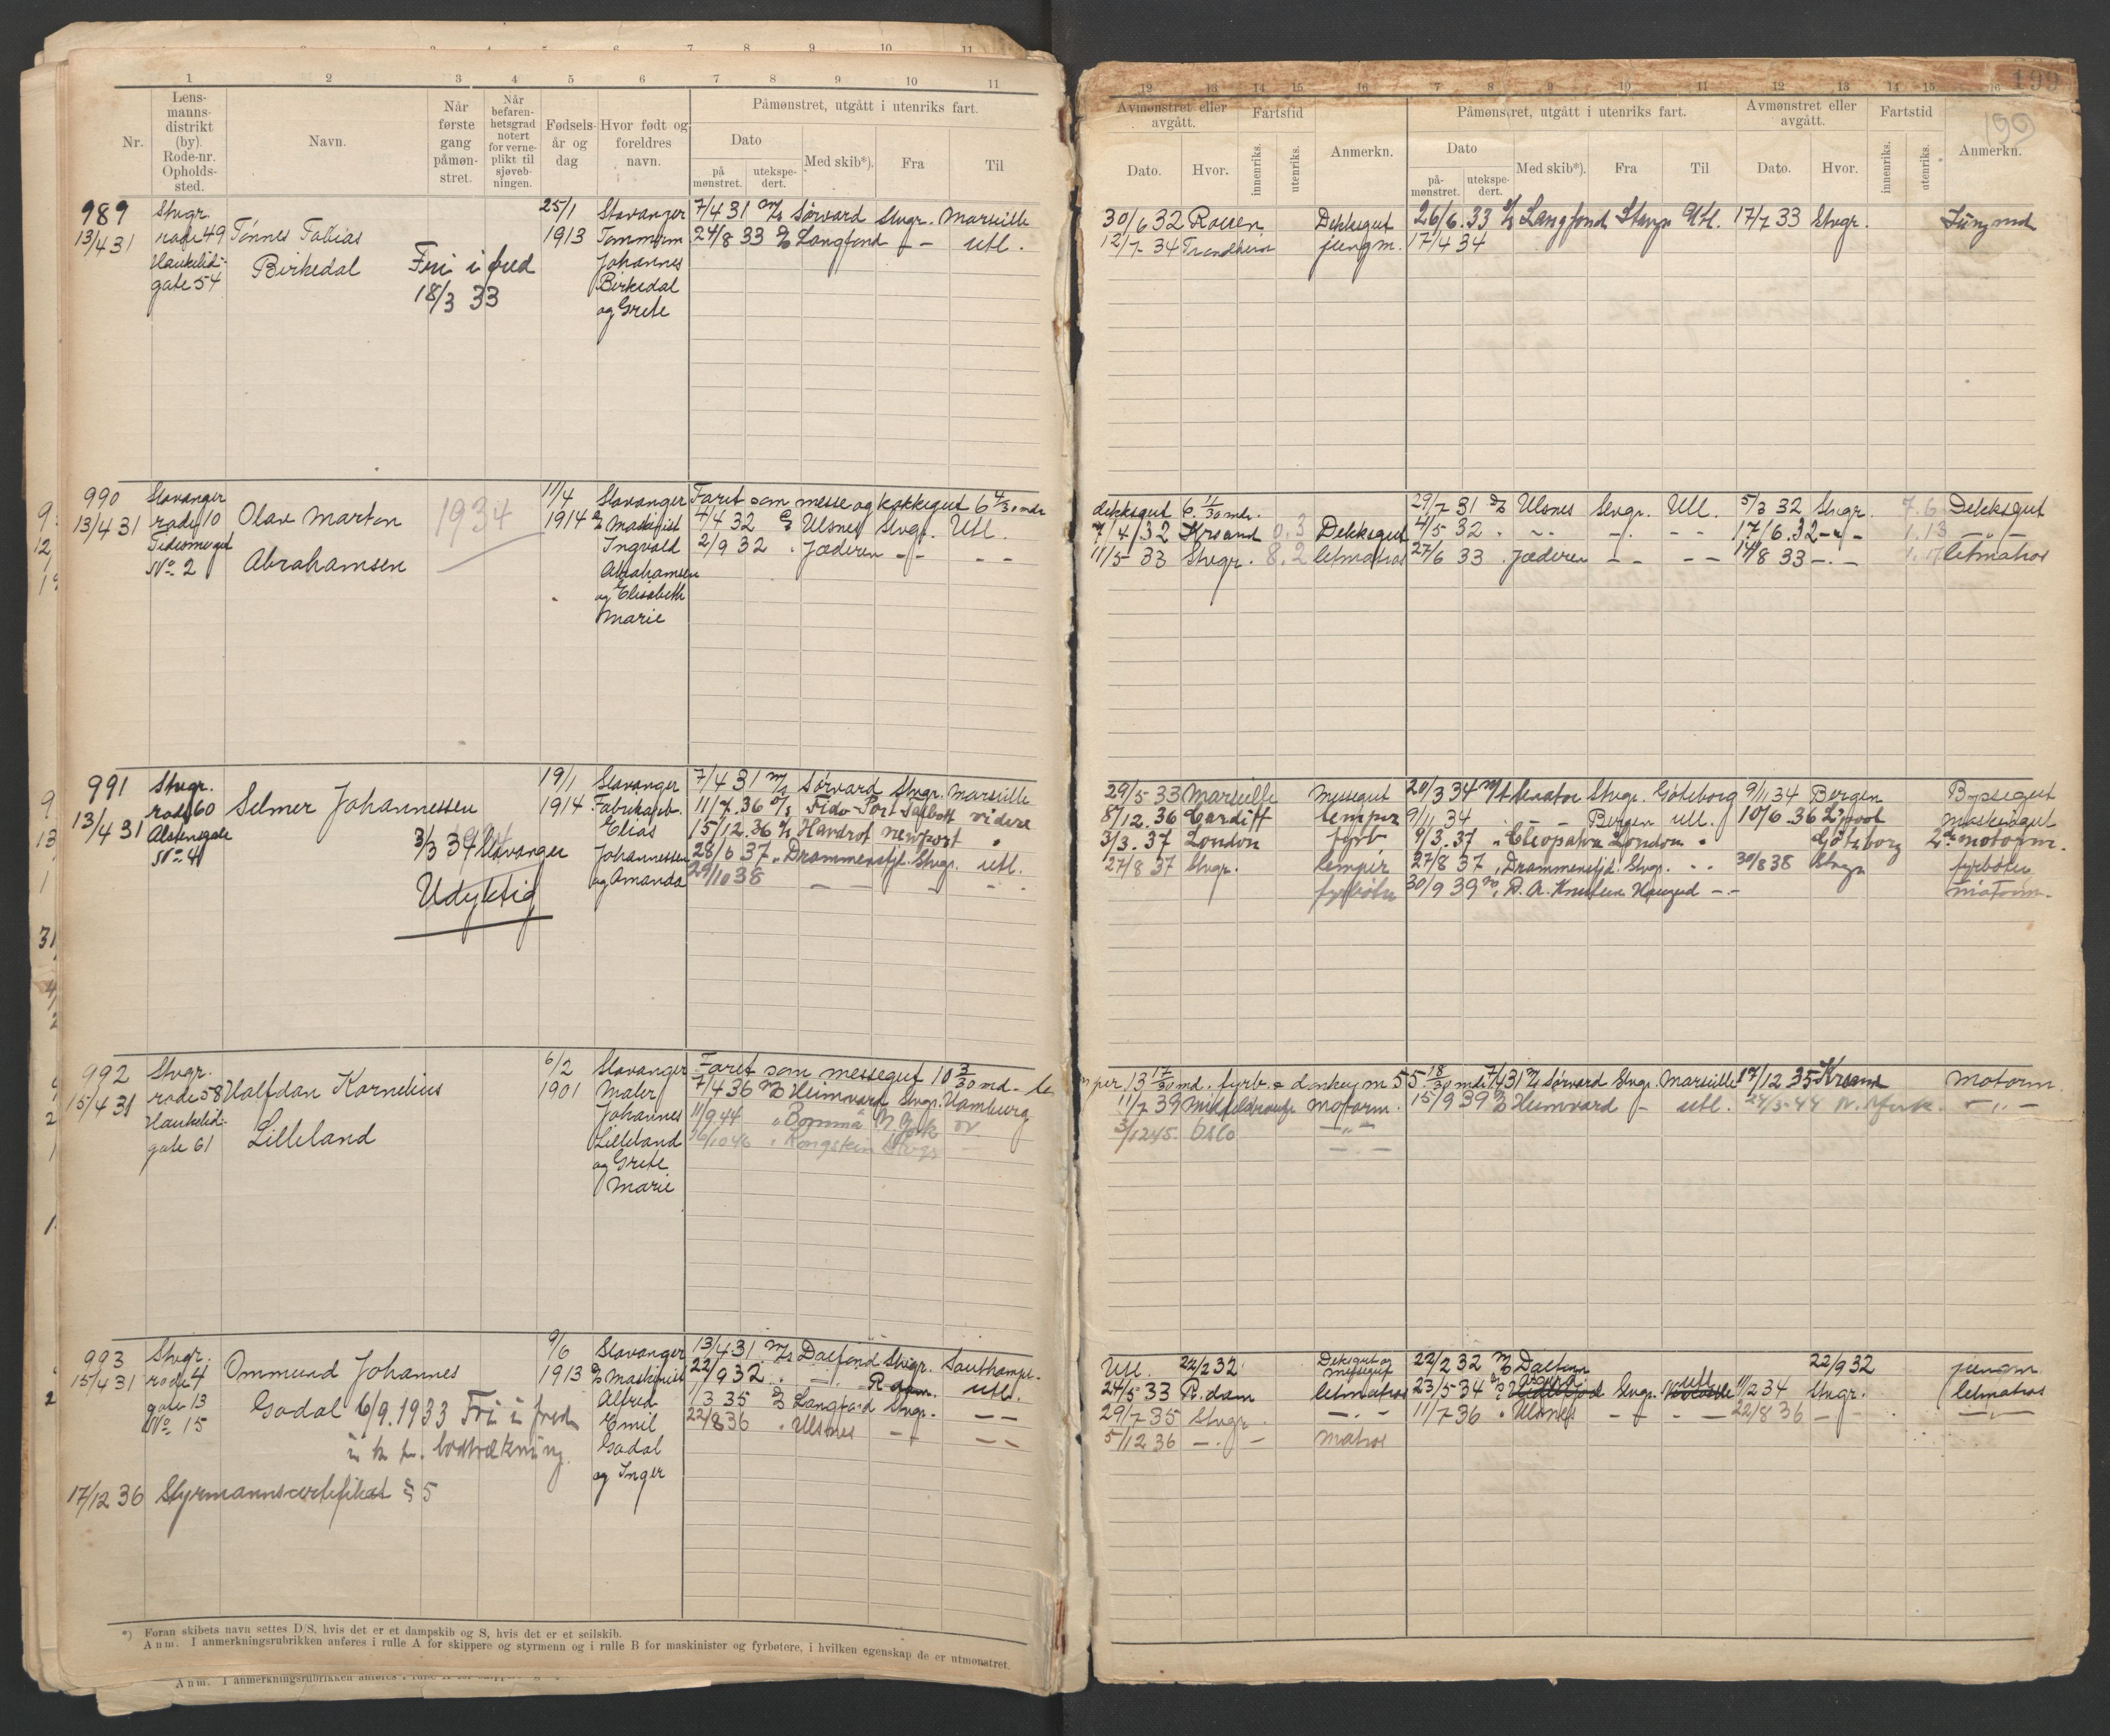 1 2 3 4 5 6 7 8 9 10 11
Nr.
Lens-
manns-
distrikt
(by).
Rode-nr.
Opholds-
sted.
Navn.
Når
første
gang
påmøn-
stret.
Når
befaren-
hetsgrad
notert
for verne-
plikt til
sjøveb-
ningen.
Fødsels-
år og
dag
Hvor født og
foreldres
navn.
Påmønstret, utgått i utenriks fart.
Dato
på
mønstret.
utekspe-
dert.
Med skib*).
Fra
Til
989 Stvgr. 25/1 Stavanger 7/4 31 M/S Sørvard Stvgr. Marseille
13/4 31 rode 49 Tønnes Tobias 1913 Tømmerm 24/8 33 Langfond utl.
Haukelid- Birkedal Fri i fred Johannes
gate 54 18/3 33 Birkedal
og Grete
990 Stavanger 11/4 Stavanger Faret som messe og kokkegut 6 4/30 mdr
13/4 31 rode 10 Olav Martin 1934 1914 Maskinist 4/4 32 Ulsnes Stvgr. Utl.
Ingvald 2/9 32 . Jæderen - - - -
No 2 Abrahamsen Abrahamsen
og Elisabeth
Marie
991 Stvgr. 19/1 Stavanger 7/4 31 M/S Sørvard Stvgr. Marseille
13/4 31 rode 60 Selmer Johannessen 1914 Fabrikarb. 11/7.36 Fido Port Talbott videre
3/3 34 Stavanger Elias 15/12.36 Havdrot Newport "
No 41 Johannessen 28/6 37 " Drammensfj. Stvgr. utl.
Udyktig og Amanda 29/10 38 - - - -
992 Stvgr. 6/2 Stavanger Faret som messegut 10 3/30 md. le
15/4 31 rode 58 Halfdan Kornelius 1901 Maler 7/4 36 Heimvard Stvgr. Hamburg
Haukelid- Johannes 11/9 44 " Bomma N. York
gate 61 Lilleland Lilleland 16/10 46 " Kongstein Stvgr -
og Grete
Marie
993 Stvgr. 9/6 Stavanger 13/4 31 M/S Dalfond Stvgr. Southampt.
15/4 31 rode 4 Ommund Johannes 1913 Maskinist 22/9 32 . - . - R.dam. utl.
gate 13 Godal 6/9.1933 Fri i fred Alfred 1/3 35 Langfond Stvgr. - -
No 15 Emil 22/8 36 . Ulsnes - - - -
Godal
og Inger
17/12 36 Styrmannscertifikat § 5
*) Foran skibets navn settes D/S, hvis det er et dampskib og S, hvis det er et seilskib.
Anm. I anmerkningsrubrikken anføres i rulle A for skippere og styrmenn og i rulle B for maskinister og fyrbøtere, i hvilken egenskap de er utmønstret.
199
199
12 13 14 15 16 7 8 9 10 11 12 13 14 15 16
Avmønstret eller
avgått.
Dato.
Hvor.
Fartstid
innenriks.
utenriks.
Anmerkn.
Påmønstret, utgått i utenriks fart.
Dato
på-
mønstret.
utekspe-
dert.
Med skib*).
Fra
Til
Avmønstret eller
avgått.
Dato.
Hvor.
Fartstid
innenriks.
utenriks.
Anmerkn.
30/6 32 Rouen Dekksgut 26/6.33 Langfond Stvgr Utl. 17/7 33 Stvgr. Jungmd
12/7 34 Trondheim jungm. 17/4 34
dekksgut 6. 11/30 mdr. 29/7 31 Ulsnes Stvgr. Utl. 5/3 32 Stvgr. 7.6 Dekksgut
7/4/32 Krsand 0.3 Dekksgut 4/5 32 . - - - - - 17/6.32 - - 1.13 - " -
11/5-33 Stvgr. 8.2 letmatros 27/6 33 . Jæderen - - - - 14/8 33 - . - letmatros
29/5 33 Marseille Messegut 20/3 34 M/T Senator Stvgr. Göteborg 9/11 34 Bergen Byssegut
8/12.36 Cardiff lemper 9/11 34 . - Bergen utl. 10/6.36 L.pool maskingut
3/3.37 London fyrb. 9/3.37 " Cleopatra London " Göteborg 2. motorm.
27/8 37 Stvgr. lemper 27/8 37 " Drammensfjd. Stvgr. - - 30/8 38 Stvgr fyrbøter
fyrbøter 30/9 39 " O. A. Knudsen Haugsd - - motorm.
mper 13 17/30 md. fyrb. & donkeym. 55 18/30 md. 7/4 31 Sørvard Stvgr. Marseille 17/12 35 Krsand Motorm.
11/7 39 motorm. 15/9 39 Heimvard - utl. 24/5-44 N. York. - " -
3/12 45. Oslo - " -
- . -
Utl. 22/2 32 Deksgut og messegut 22/2 32 Dalfonn 22/9 32 jungm
24/5 33 R.dam letmatros 23/5 34 Stvgr. utl 11/2 34 Stvgr. letmatros
29/7 35 Stvgr. - . - 11/7 36 . Ulsnes - - - 22/8 36 - - - " -
5/12 36 - . - matros